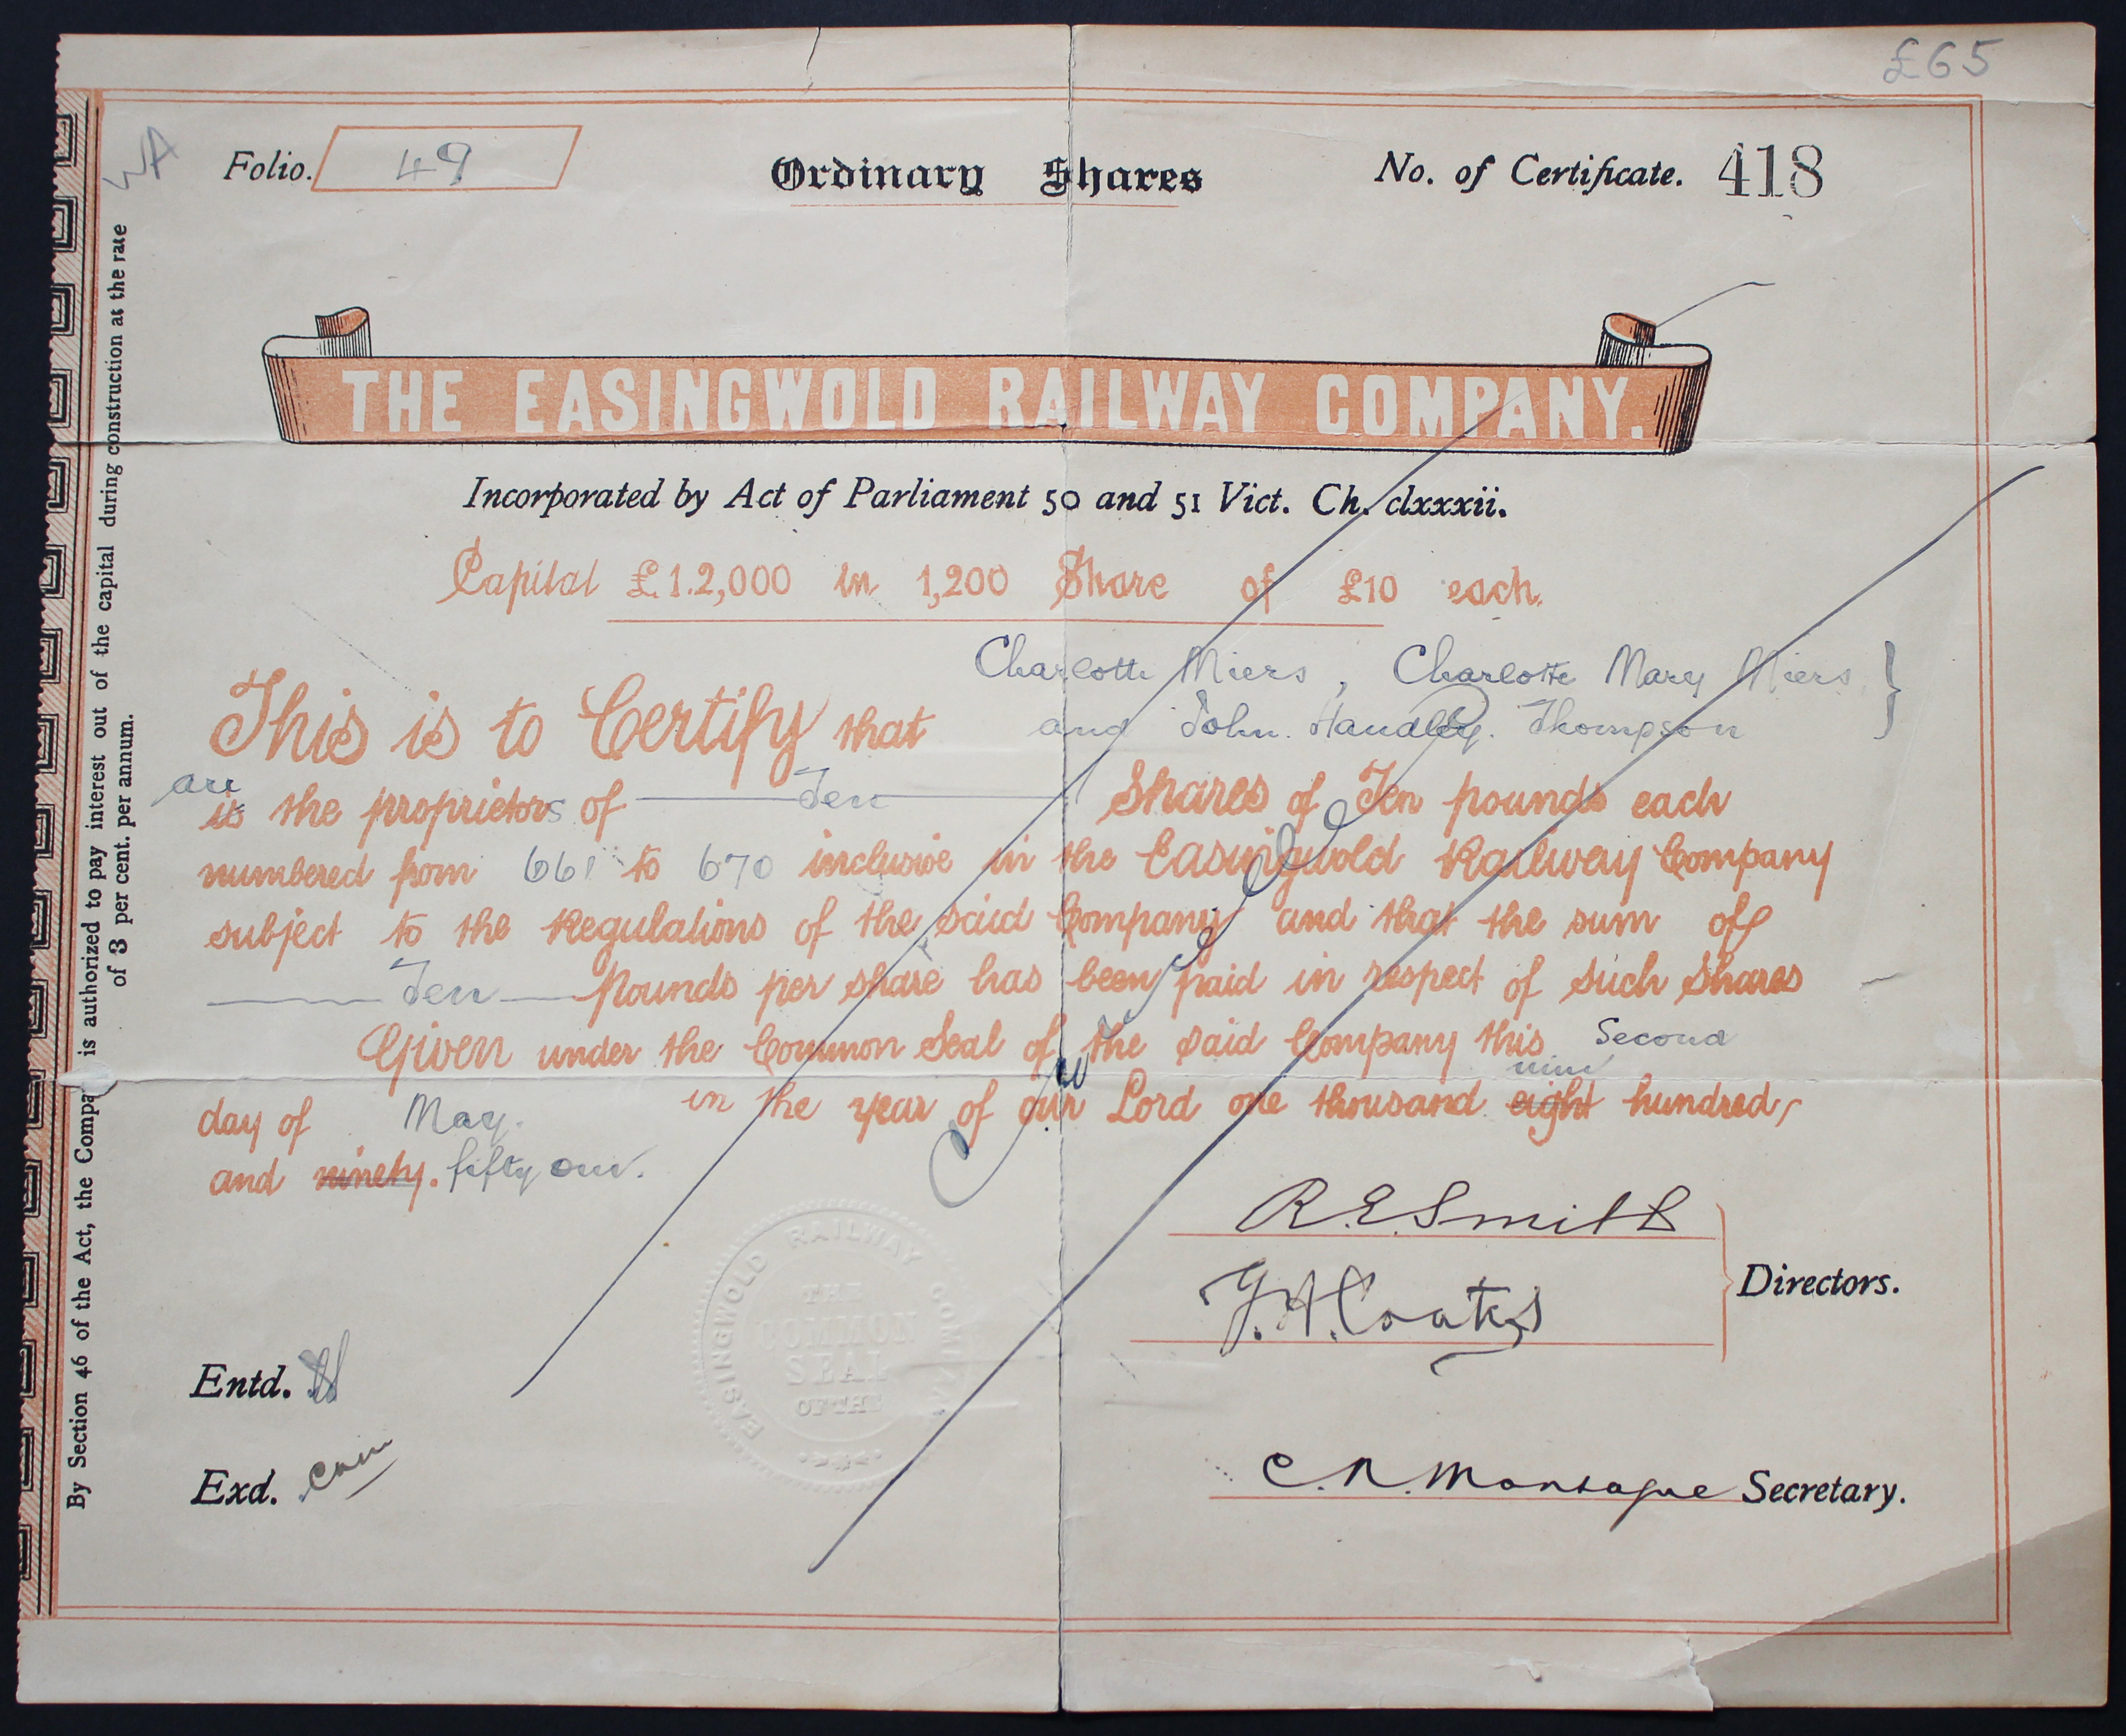 £65
Folio. 49 Ordinary Shares No. of Certificate. 418
THE EASINGWOLD RAILWAY COMPANY.
Incorporated by Act of Parliament 50 and 51 Vict. Ch. clxxxii.
Capital £1.2,000 in 1,200 Share of £10 each.
Charlotte Miers, Charlotte Mary Miers }
This is to Certify that and John. Handley. Thompson
are
is the proprietors of Ten Shares of Ten pounds each
numbered from 661 to 670 inclusive in the Easingwold Railway Company
subject to the Regulations of the said Company and that the sum of
Ten Pounds per share has been paid in respect of such Shares
Given under the Common Seal of the said Company this Second
nine
day of May. in the year of our Lord one thousand eight hundred
and ninety. fifty one.
Cancelled
R.E. Smith
Directors.
Entd.
Exd. C. R. Montague Secretary.
EASINGWOLD RAILWAY COMPANY
THE
COMMON
SEAL
OF THE
By Section 46 of the Act, the Compa is authorized to pay interest out of the capital during construction at the rate
of 3 per cent. per annum.